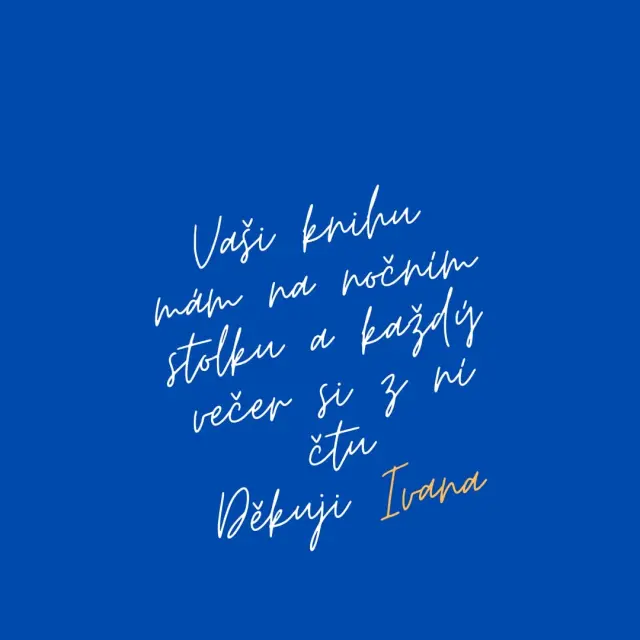 Vaši knihu
mám na nočním
stolku a každý
večer si z ní
čtu
Děkuji Ivana